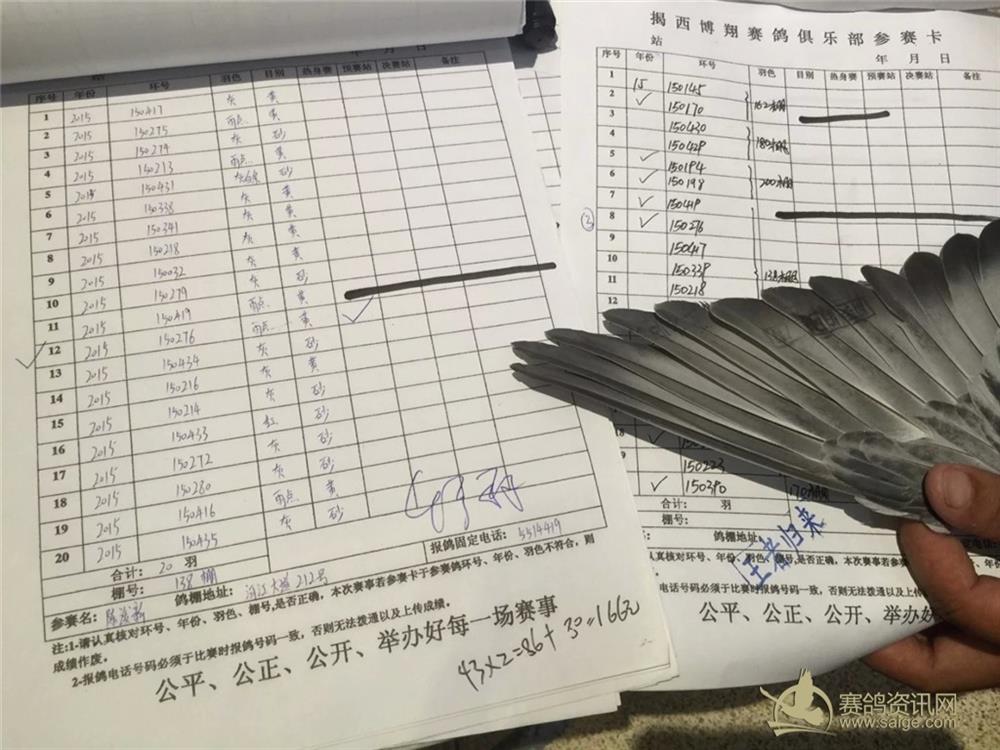 年 月 日
站
序号 年份 环号 羽色 目别 热身赛 预赛站 决赛站 备注
1 2015 150417 灰 黄
2 2015 150275 雨点 黄
3 2015 150274 灰 砂
4 2015 150213 雨点 黄
5 2015 150431 砂
6 2015 150338 灰 黄
7 2015 150341 灰 黄
8 2015 150218 灰 黄
9 2015 150032 灰 黄
10 2015 150279 灰 砂
11 2015 150419 雨点 黄
12 2015 150276 雨点 黄
13 2015 150434 灰 砂
14 2015 150216 灰 黄
15 2015 150214 灰 砂
16 2015 150433 红 砂
17 2015 150272 灰 砂
18 2015 150280 灰 砂
19 2015 150416 雨点 黄
20 2015 150435 灰 砂
合计: 20 羽
报鸽固定电话: 5514419
棚号: 138棚 鸽棚地址: 212号
参赛名:
注:1-请认真核对环号、年份、羽色、棚号,是否正确,本次赛事若参赛卡于参赛鸽环号、年份、羽色不符合,则
成绩作废。
2-报鸽电话号码必须于比赛时报鸽号码一致,否则无法拨通以及上传成绩。
公平、公正、公开、举办好每一场赛事
43×2=86+30=166元
揭西博翔赛鸽俱乐部参赛卡
站 年 月 日
序号 年份 环号 羽色 目别 热身赛 预赛站 决赛站 备注
1 15 150145
2 150170 162棚
3 150430
4 150429 180棚
5 150194
6 150198 200棚
7 150419
8 150276
9 150417
10 150339
11 150218 138棚
12
18
150223
150390 170棚
合计: 羽
棚号:
鸽棚地址:
王者归来
认真核对环号、年份、羽色、棚号,是否正确,本次赛事若参赛
电话号码必须于比赛时报鸽号码一致,否则无法拨通以及上传成绩
公平、公正、公开、举办好
赛鸽资讯网
www.saige.com